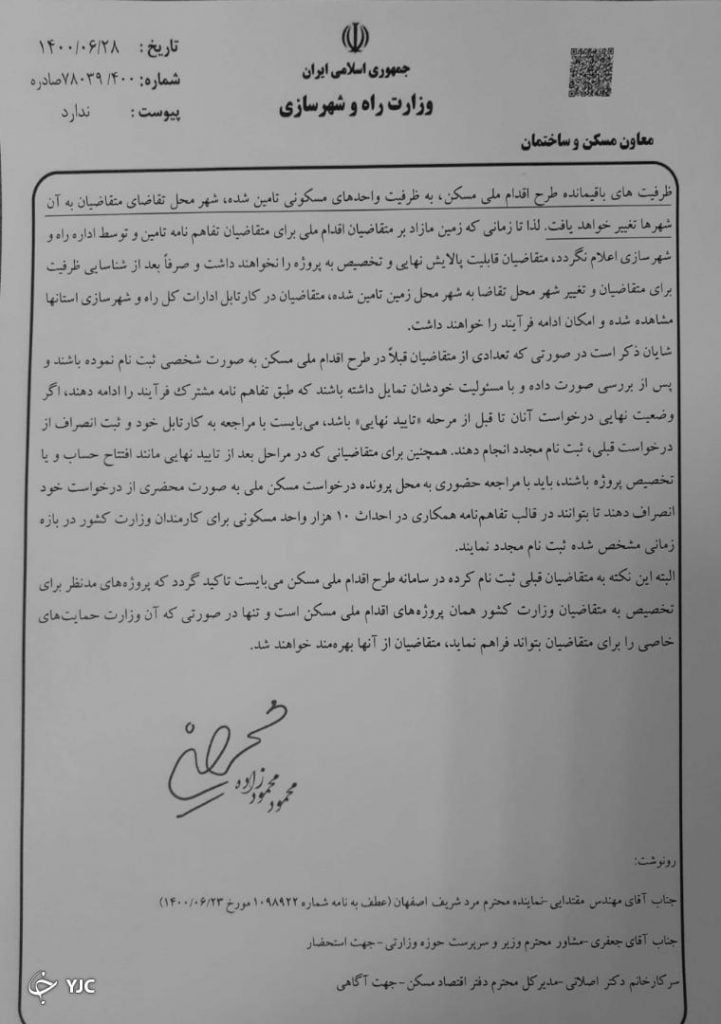 جمهوری اسلامی ایران
وزارت راه و شهرسازی
معاون مسکن و ساختمان
تاریخ : ۱۴۰۰/۰۶/۲۸
شماره: ۴۰۰/ ۷۸۰۳۹صادره
پیوست : ندارد
ظرفیت های باقیمانده طرح اقدام ملی مسکن، به ظرفیت واحدهای مسکونی تامین شده، شهر محل تقاضای متقاضیان به آن
شهرها تغییر خواهد یافت. لذا تا زمانی که زمین مازاد بر متقاضیان اقدام ملی برای متقاضیان تفاهم نامه تامین و توسط اداره راه و
شهرسازی اعلام نگردد، متقاضیان قابلیت پالایش نهایی و تخصیص به پروژه را نخواهند داشت و صرفاً بعد از شناسایی ظرفیت
برای متقاضیان و تغییر شهر محل تقاضا به شهر محل زمین تامین شده، متقاضیان در کارتابل ادارات کل راه و شهرسازی استانها
مشاهده شده و امکان ادامه فرآیند را خواهند داشت.
شایان ذکر است در صورتی که تعدادی از متقاضیان قبلاً در طرح اقدام ملی مسکن به صورت شخصی ثبت نام نموده باشند و
پس از بررسی صورت داده و با مسئولیت خودشان تمایل داشته باشند که طبق تفاهم نامه مشترک فرآیند را ادامه دهند، اگر
وضعیت نهایی درخواست آنان تا قبل از مرحله «تایید نهایی» باشد، می‌بایست با مراجعه به کارتابل خود و ثبت انصراف از
درخواست قبلی، ثبت نام مجدد انجام دهند. همچنین برای متقاضیانی که در مراحل بعد از تایید نهایی مانند افتتاح حساب و یا
تخصیص پروژه باشند، باید با مراجعه حضوری به محل پرونده درخواست مسکن ملی به صورت محضری از درخواست خود
انصراف دهند تا بتوانند در قالب تفاهم‌نامه همکاری در احداث ۱۰ هزار واحد مسکونی برای کارمندان وزارت کشور در بازه
زمانی مشخص شده ثبت نام مجدد نمایند.
البته این نکته به متقاضیان قبلی ثبت نام کرده در سامانه طرح اقدام ملی مسکن می‌بایست تاکید گردد که پروژه‌های مدنظر برای
تخصیص به متقاضیان وزارت کشور همان پروژه‌های اقدام ملی مسکن است و تنها در صورتی که آن وزارت حمایت‌های
خاصی را برای متقاضیان بتواند فراهم نماید، متقاضیان از آنها بهره‌مند خواهند شد.
محمود محمودزاده
رونوشت:
جناب آقای مهندس مقتدایی-نماینده محترم مرد شریف اصفهان (عطف به نامه شماره ۱۰۹۸۹۲۲ مورخ ۱۴۰۰/۰۶/۲۳)
جناب آقای جعفری-مشاور محترم وزیر و سرپرست حوزه وزارتی-جهت استحضار
سرکارخانم دکتر اصلانی-مدیرکل محترم دفتر اقتصاد مسکن-جهت آگاهی
YJC